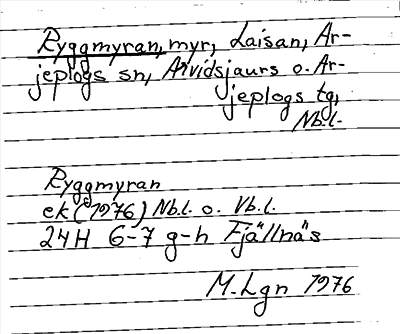 Ryggmyran, myr, Laisan, Ar-
jeplogs sn, Arvidsjaurs o. Ar-
jeplogs tg,
Nb.l.
Ryggmyran
ek (1976) Nb.l. o. Vb.l.
24H 6-7 g-h Fjällnäs
M. Lgn 1976